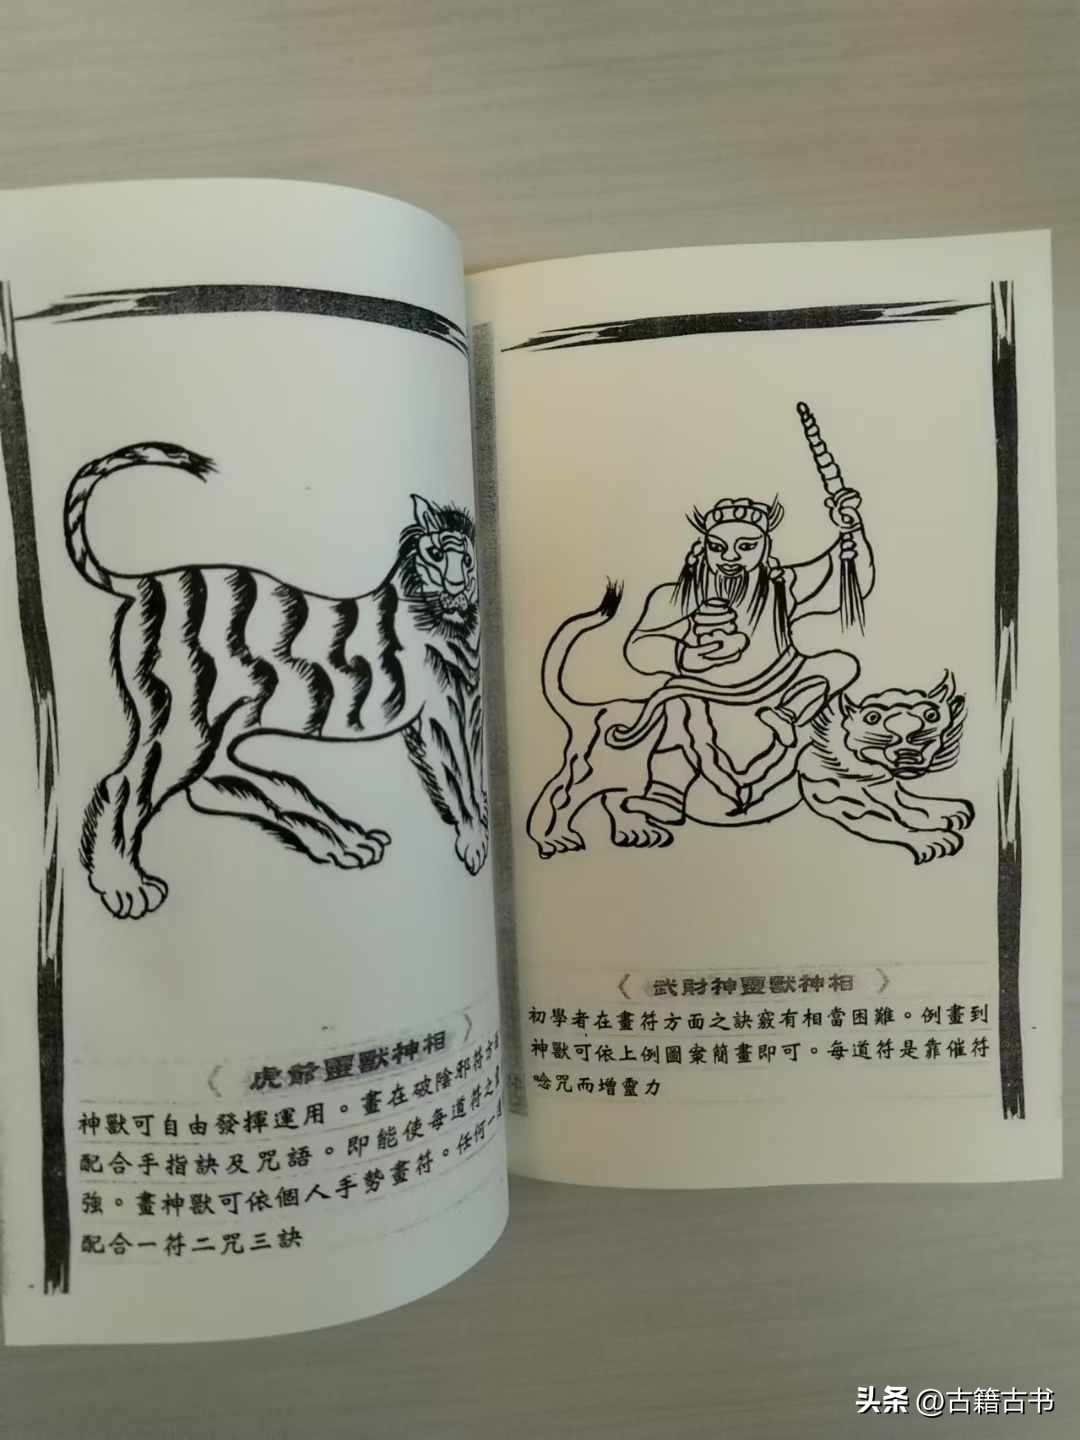 《虎爺靈獸神相》
神獸可自由發揮運用。畫在破陰邪符方
配合手指訣及咒語。即能使每道符之靈
強。畫神獸可依個人手勢畫符。任何一
配合一符二咒三訣
《武財神靈獸神相》
初學者在畫符方面之訣竅有相當困難。例畫到
神獸可依上例圖案簡畫即可。每道符是靠催符
唸咒而增靈力
头条 @古籍古书